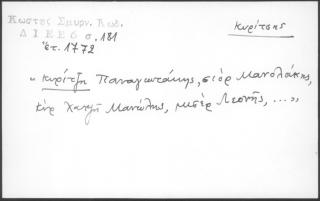 Κωστας Σμυρν. Κωδ.
Δ Ι Ε Ε 6 σ. 181
ἔτ. 1772
Κυρίτσης
« Κυρίτζη Παναγιωτάκης, σιὸρ Μανολάκης,
κὺρ Χατζῆ Μανώλης, μπὲρ Λεονῆς, ... »